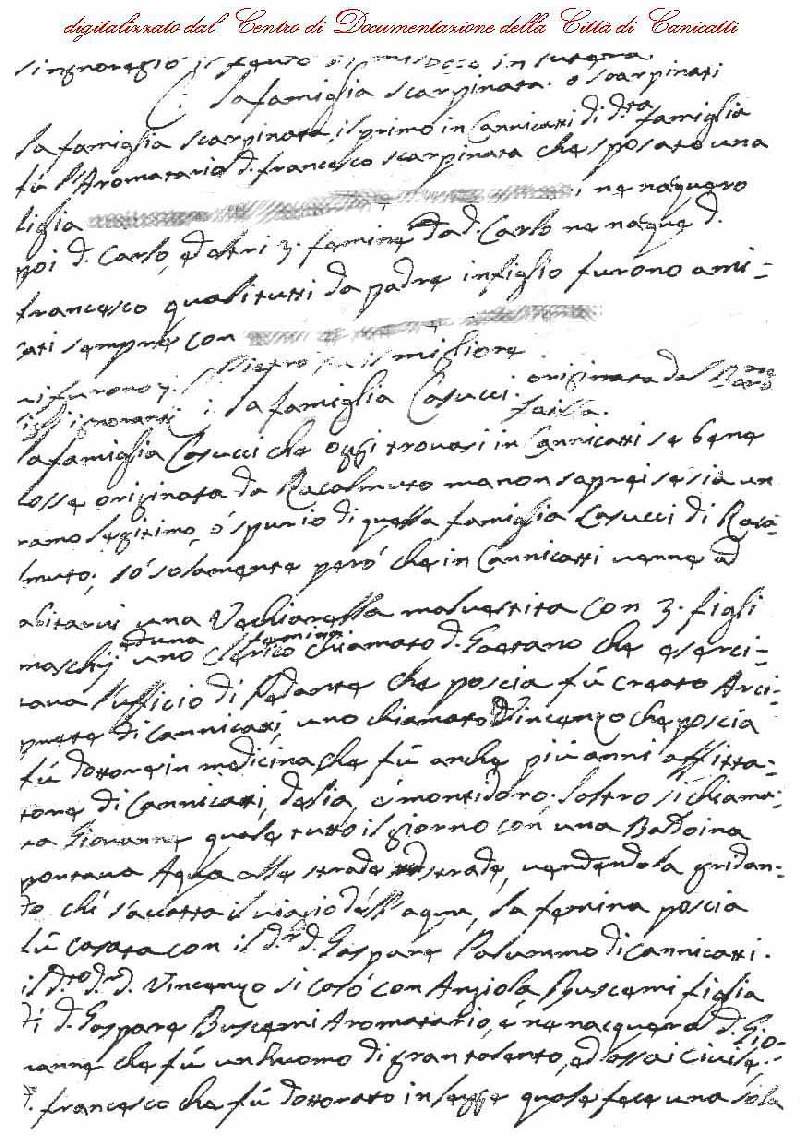 digitalizzato dal Centro di Documentazione della Città di Canicattì
la famiglia scarpinata. o scarpinati
la famiglia scarpinata, il primo in Cannicatti di dta famiglia
fù l'Aromatario d. francesco scarpinata che sposato una
figlia ; ne naquero
poi d. Carlo, ed altri 3. femine da d. Carlo ne naque d.
francesco quali tutti da padre in figlio furono ami-
cati sempre con
Pietro fu il migliore
la famiglia Casucci. originata dal
la famiglia Casucci che oggi trovasi in Cannicatti se bene
fosse originata da Racalmuto ma non saprei se sia un
ramo legitimo, ò spurio di quella famiglia Casucci di Racal-
muto; sò solamente però che in Cannicatti venne ad
abitarvi una Vechiarella malvestita con 3. figli
maschij ed una femina uno Clerico chiamato d. Gaetano che eserci-
tava l'ufficio di Pedante che poscia fù creato Arci-
prete di Cannicatti, uno chiamato Vincenzo che poscia
fù dottore in medicina che fù anche più anni affitta-
tore di Cannicatti, delia, è montedoro. l'altro si chiama-
va Giovanne quale tutto il giorno con una Baddoina
portava Aqua alle strade strade, vendendola gridan-
do chi s'accatta il viagio dell'aqua, la femina poscia
fù casata con il d.r d. Gaspare Palummo di Cannicatti.
il d.to d.r d. Vincenzo si casò con Angiola Buscemi figlia
di d. Gaspare Buscemi Aromatario, è ne nacquero d. Gio-
vanne che fù un huomo di gran talento, ed assai Civile.
d. francesco che fù dottorato in legge quale fece una sola